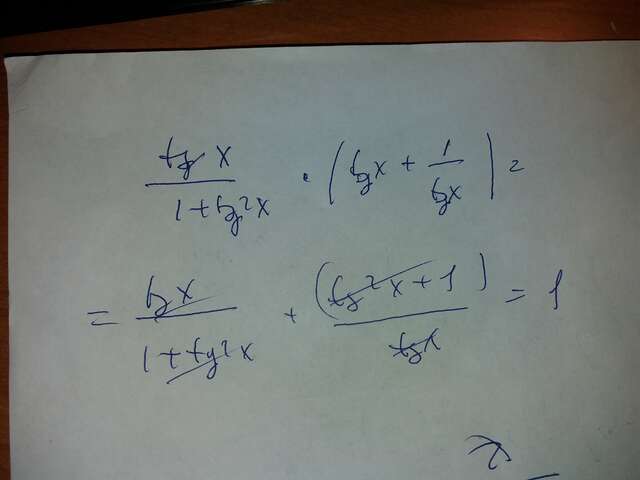 tg x / 1 + tg²x · (tg x + 1 / tg x) =
= tg x / 1 + tg²x · (tg²x + 1) / tg x = 1